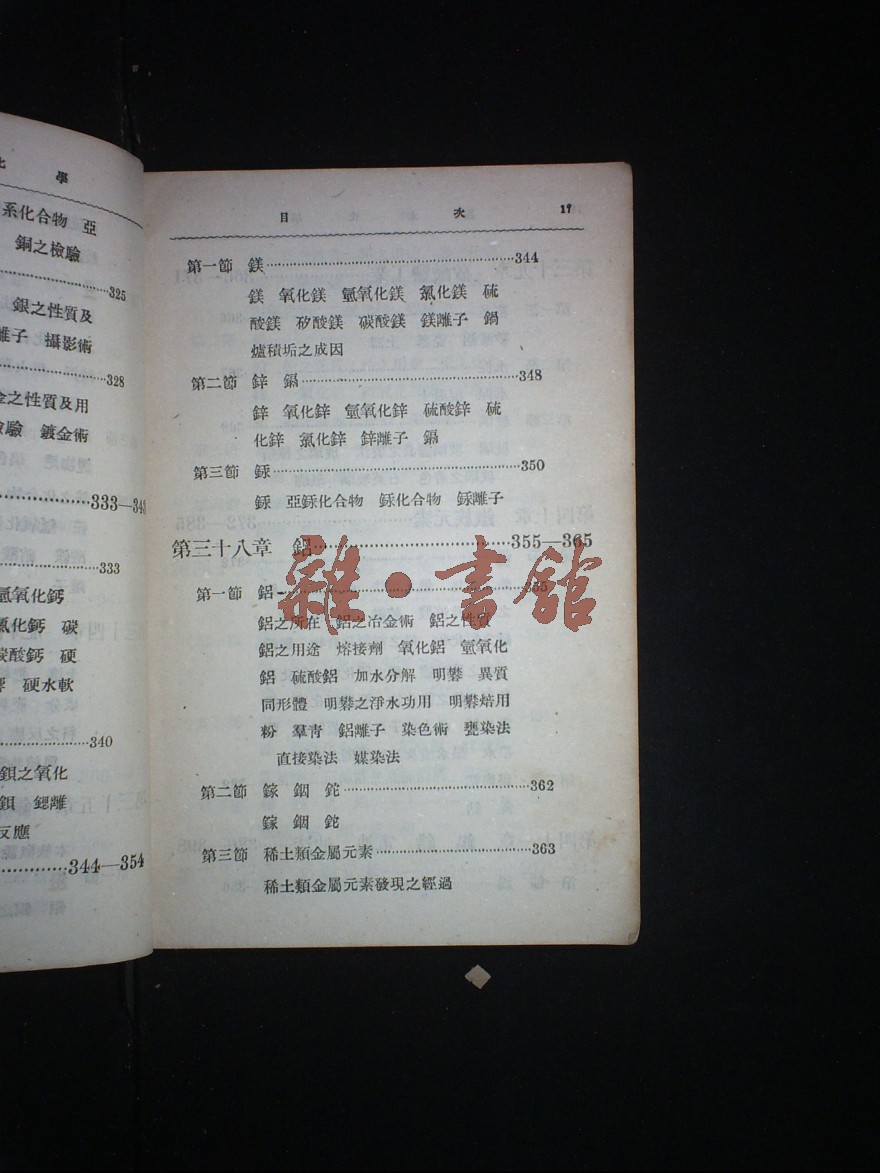 化學
系化合物 亞
銅之檢驗
325
銀之性質及
離子 攝影術
328
金之性質及用
檢驗 鍍金術
333—34
333
氫氧化鈣
氯化鈣 碳
碳酸鈣 硬
硬水軟
340
鋇之氧化
鋇 鍶離
反應
344—354
目次 17
第一節 鎂 344
鎂 氧化鎂 氫氧化鎂 氯化鎂 硫
酸鎂 矽酸鎂 碳酸鎂 鎂離子 鍋
爐積垢之成因
第二節 鋅 鎘 348
鋅 氧化鋅 氫氧化鋅 硫酸鋅 硫
化鋅 氯化鋅 鋅離子 鎘
第三節 銾 350
銾 亞銾化合物 銾化合物 銾離子
第三十八章 鋁 355—365
雜·書館
第一節 鋁 355
鋁之所在 鋁之冶金術 鋁之性質
鋁之用途 熔接劑 氧化鋁 氫氧化
鋁 硫酸鋁 加水分解 明攀 異質
同形體 明攀之淨水功用 明攀焙用
粉 羣青 鋁離子 染色術 甕染法
直接染法 媒染法
第二節 鎵 銦 鉈 362
鎵 銦 鉈
第三節 稀土類金屬元素 363
稀土類金屬元素發現之經過